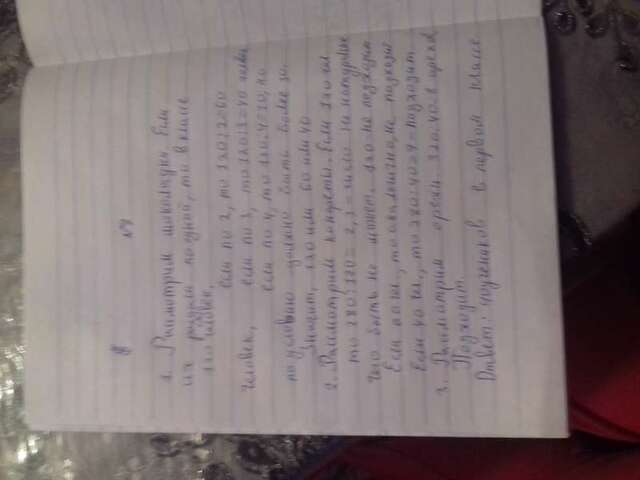 №7
1. Рассмотрим шоколадки. Если
их раздали по одной, то в классе
120 человек,
если по 2, то 120:2=60
человек, если по 3, то 120:3=40 челов
если по 4, то 120:4=30, но
по условию должно быть более 30.
Значит, 120 или 60 или 40
2. Рассмотрим конфеты. Если 120 чел
то 280:120= 2,3 = число не натуральное
чего быть не может. 120 не подходит
Если 60 чел., то аналогично, не подходит
Если 40 чел., то 280:40=7 = подходит
3. Рассмотрим орехи 320:40=8 орехов
Подходит.
Ответ: 40 учеников в первом классе